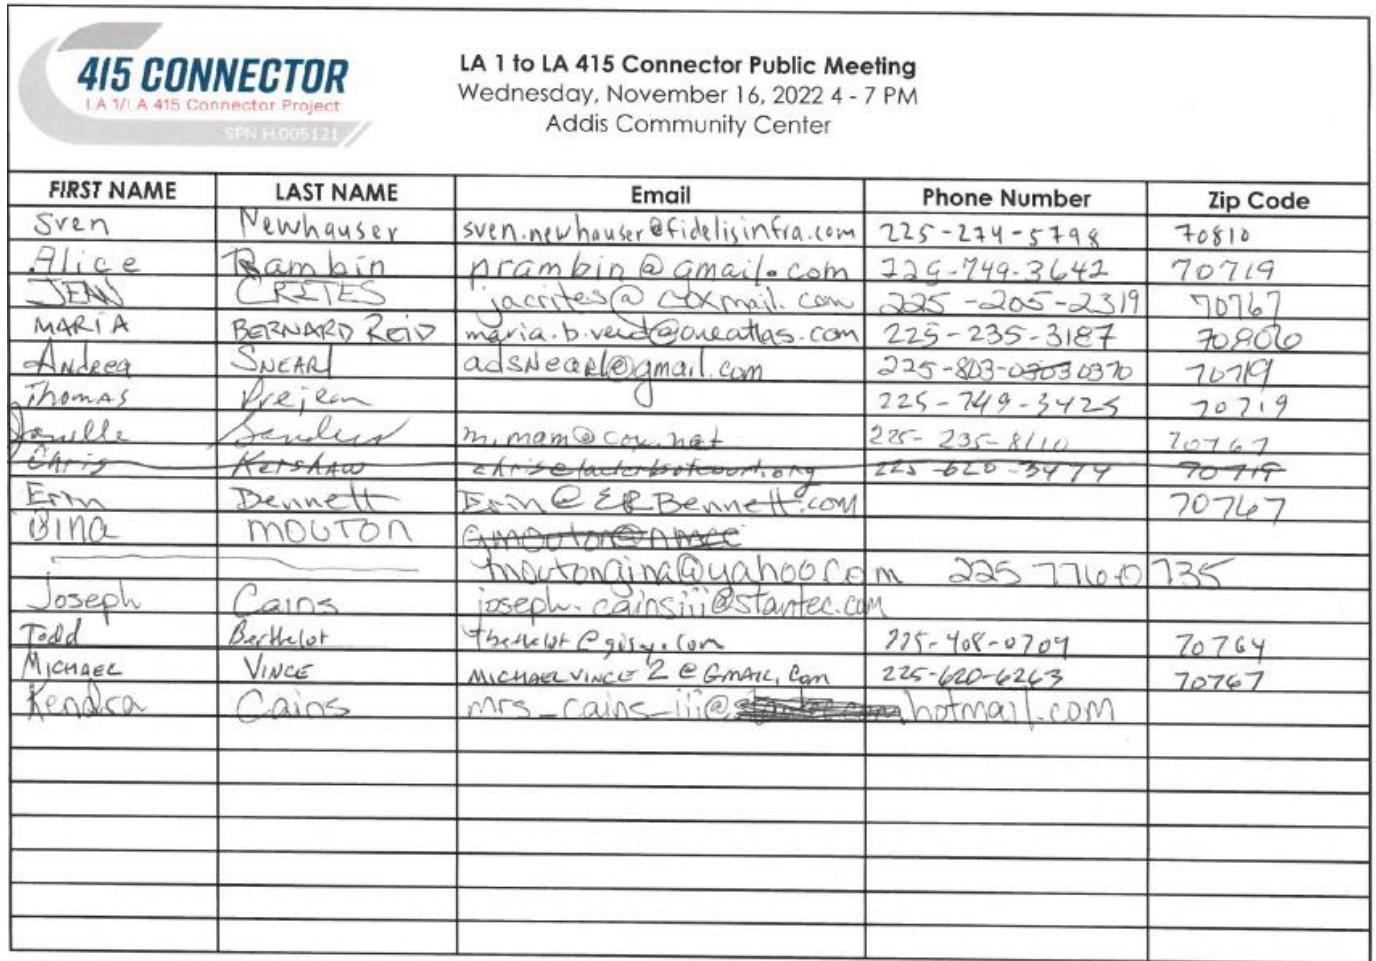 415 CONNECTOR
LA 1/LA 415 Connector Project
SPN H.005121
LA 1 to LA 415 Connector Public Meeting
Wednesday, November 16, 2022 4 - 7 PM
Addis Community Center
FIRST NAME LAST NAME Email Phone Number Zip Code
Sven Newhauser sven.newhauser@fidelisinfra.com 225-274-5798 70810
Alice Rambin prambin@gmail.com 225-749-3642 70719
JEAN CRITES jacrites@coxmail.com 225-205-2319 70767
MARIA BERNARD REID 225-235-3187
Andrea SNEARL adsNearl@gmail.com 225-803-0370 70719
Thomas Prejean 225-749-3425 70719
Sanders m.mam@cox.net 225-235-8110 70767
Chris Kershaw 225-620-3474 70719
Erin Bennett Erin@ERBennett.com 70767
Gina MOUTON
moutongina@yahoo.com 225 776-0735
Joseph Cains joseph.cainsiii@stantec.com
Todd Berthelot 225-408-0709 70764
MICHAEL VINCE MICHAELVINCE2@GMAIL.COM 225-620-6263 70767
Kendra Cains mrs_cains_iii@hotmail.com